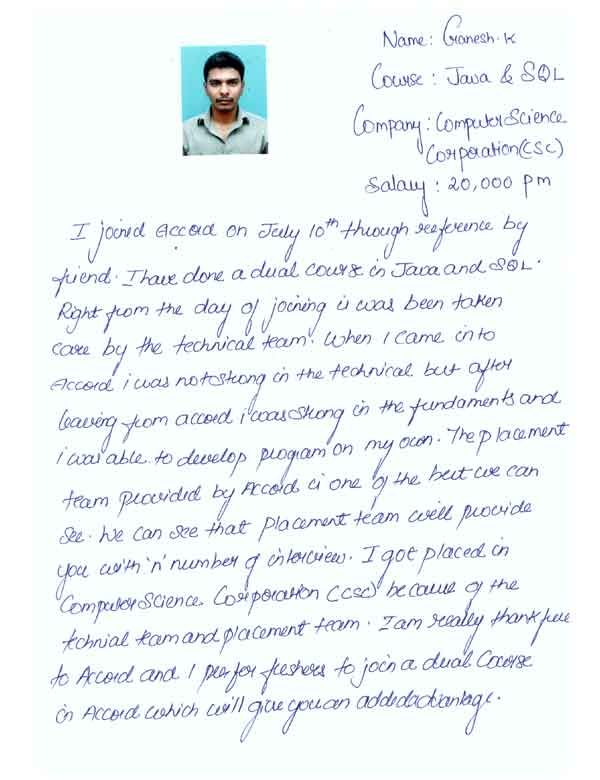 Name: Ganesh.K
Course : Java & SQL
Company : Computer Science
Corporation (CSC)
Salary : 20,000 pm
I joined Accord on July 10th through reference by
friend. I have done a dual course in Java and SQL.
Right from the day of joining is was been taken
care by the technical team. When I came into
Accord i was not strong in the technical but after
leaving from accord i was strong in the fundaments and
i was able to develop program on my own. The placement
team provided by Accord is one of the best we can
see. We can see that placement team will provide
you with 'n' number of interview. I got placed in
Computer Science Corporation (CSC) because of the
technial team and placement team. I am really thankful
to Accord and I prefer freshers to join a dual Course
in Accord which will give you an added advantage.